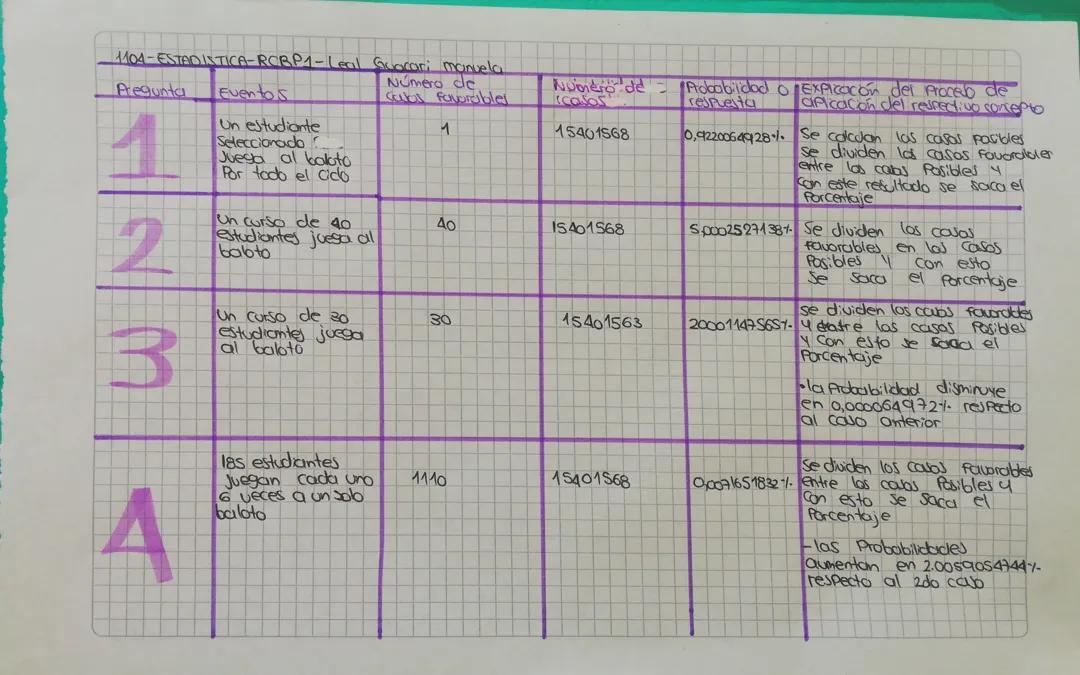 1104-ESTADISTICA-RCRP1-Leal Guacari manuela
Pregunta
Eventos
Número de
casos favorables
Número de
casos
Probabilidad o
respuesta
Explicación del Proceso de
aplicación del respectivo concepto
1
Un estudiante
seleccionado
Juega al baloto
Por todo el ciclo
1
15401568
0,9220064928%
Se calculan los casos posibles
se dividen los casos favorables
entre los casos Posibles y
con este resultado se saca el
Porcentaje
2
Un curso de 40
estudiantes juega al
baloto
40
15401568
Se dividen los casos
favorables en los casos
Posibles y con esto
se saca el Porcentaje
3
Un curso de 30
estudiantes juega
al baloto
30
15401563
se dividen los casos favorables
y entre los casos Posibles
y con esto se saca el
Porcentaje
•la Probabilidad disminuye
en 0,000064972% respecto
al caso anterior
4
185 estudiantes
juegan cada uno
6 veces a un solo
baloto
1110
15401568
0,0071651832%
se dividen los casos favorables
entre los casos Posibles y
con esto se saca el
Porcentaje
-las Probabilidades
aumentan en 2.0059054744%
respecto al 2do caso